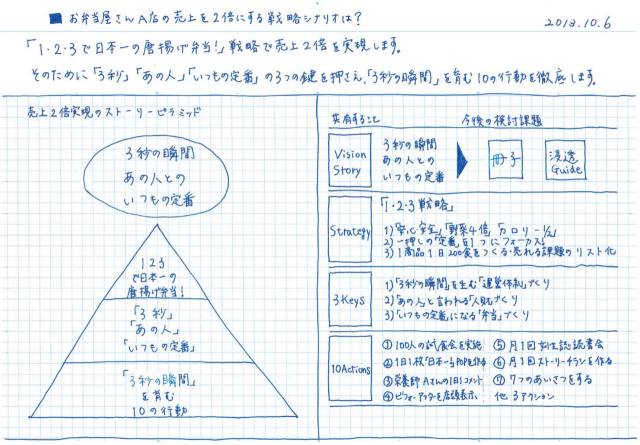 ■ お弁当屋さんA店の売上を2倍にする戦略シナリオは?
2012.10.6
「1・2・3で日本一の唐揚げ弁当!」戦略で売上2倍を実現します。
そのために「3秒」「あの人」「いつもの定番」の3つの鍵を押さえ、「3秒の瞬間」を育む10の行動を徹底します。
売上2倍実現のストーリーピラミッド
3秒の瞬間
あの人との
いつもの定番
123
で日本一の
唐揚げ弁当!
「3秒」
「あの人」
「いつもの定番」
「3秒の瞬間」
を育む
10の行動
共有すること
今後の検討課題
Vision
Story
3秒の瞬間
あの人との
いつもの定番
冊子
浸透
Guide
Strategy
「1・2・3戦略」
1)「安心・安全」「野菜4倍」「カロリー1/2」
2) 一押しの「定番」を1つにフォーカス!
3) 1商品1日200食をつくる・売れる課題のリスト化
3Keys
1)「3秒の瞬間」を生む「運営体制」づくり
2)「あの人」と言われる「人財」づくり
3)「いつもの定番」になる「弁当」づくり
10Actions
① 100人の試食会を実施
② 1日1枚「日本一」POPを作る
③ 栄養師Aさんの1日1コメント
④ ビフォーアフターを店頭表示
⑤ 月1回 読書会
⑥ 月1回ストーリーチラシを作る
⑦ 7つのあいさつをする
他 3アクション